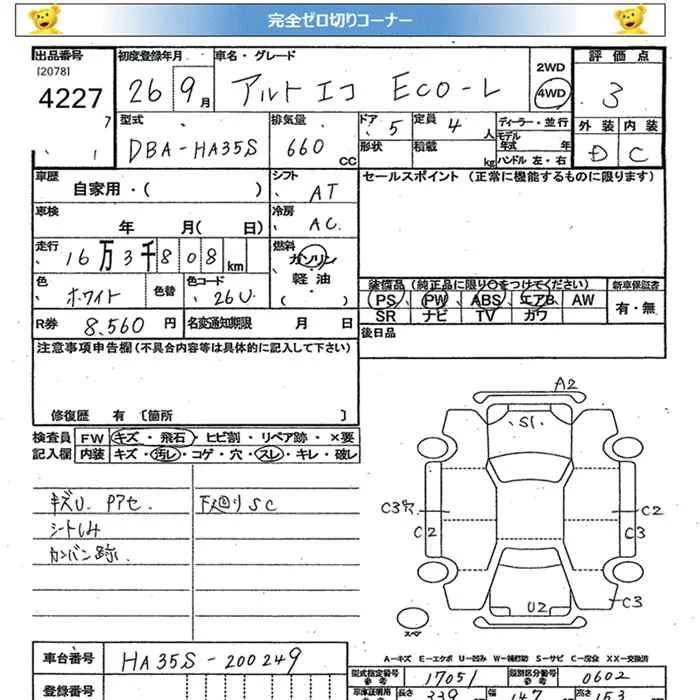 完全ゼロ切りコーナー
出品番号 初度登録年月 車名・グレード 2WD 評価点
[2078]
4227 26 9月 アルト エコ ECO-L 4WD 3
7 型式 排気量 ドア 5 定員 4人 ディーラー・並行 外装 内装
DBA-HA35S 660 CC 形状 積載 kg モデル年式 年 D C
ハンドル 左・右
車歴 シフト セールスポイント (正常に機能するものに限ります)
自家用・( ) AT
車検 冷房
年 月( 日) AC
走行 燃料
16万3千808km ガソリン
色 色替 色コード 軽油
ホワイト 26U ・( )
装備品 (純正品に限り○をつけてください) 新車保証書
PS PW ABS エアB AW 有・無
SR ナビ TV カワ
R券 8,560円 名変通知期限 月 日
後日品
注意事項申告欄 (不具合内容等は具体的に記入して下さい)
修復歴 有 〔箇所 〕
検査員 FW キズ・飛石・ヒビ割・リペア跡・×要
記入欄 内装 キズ・汚レ・コゲ・穴・スレ・キレ・破レ
キズU. Pアセ 下廻りSC
シートしみ
カンバン跡
A2
S1
C3穴 C2
C2 C3
U2 C3
スペア
A―キズ E―エクボ U―凹み W―補修跡 S―サビ C―腐食 XX―交換済
車台番号 HA35S-200249
型式指定番号 17051 類別区分番号 0602
参考 参考
登録番号 車庫証明用 長さ 339 幅 147 高さ